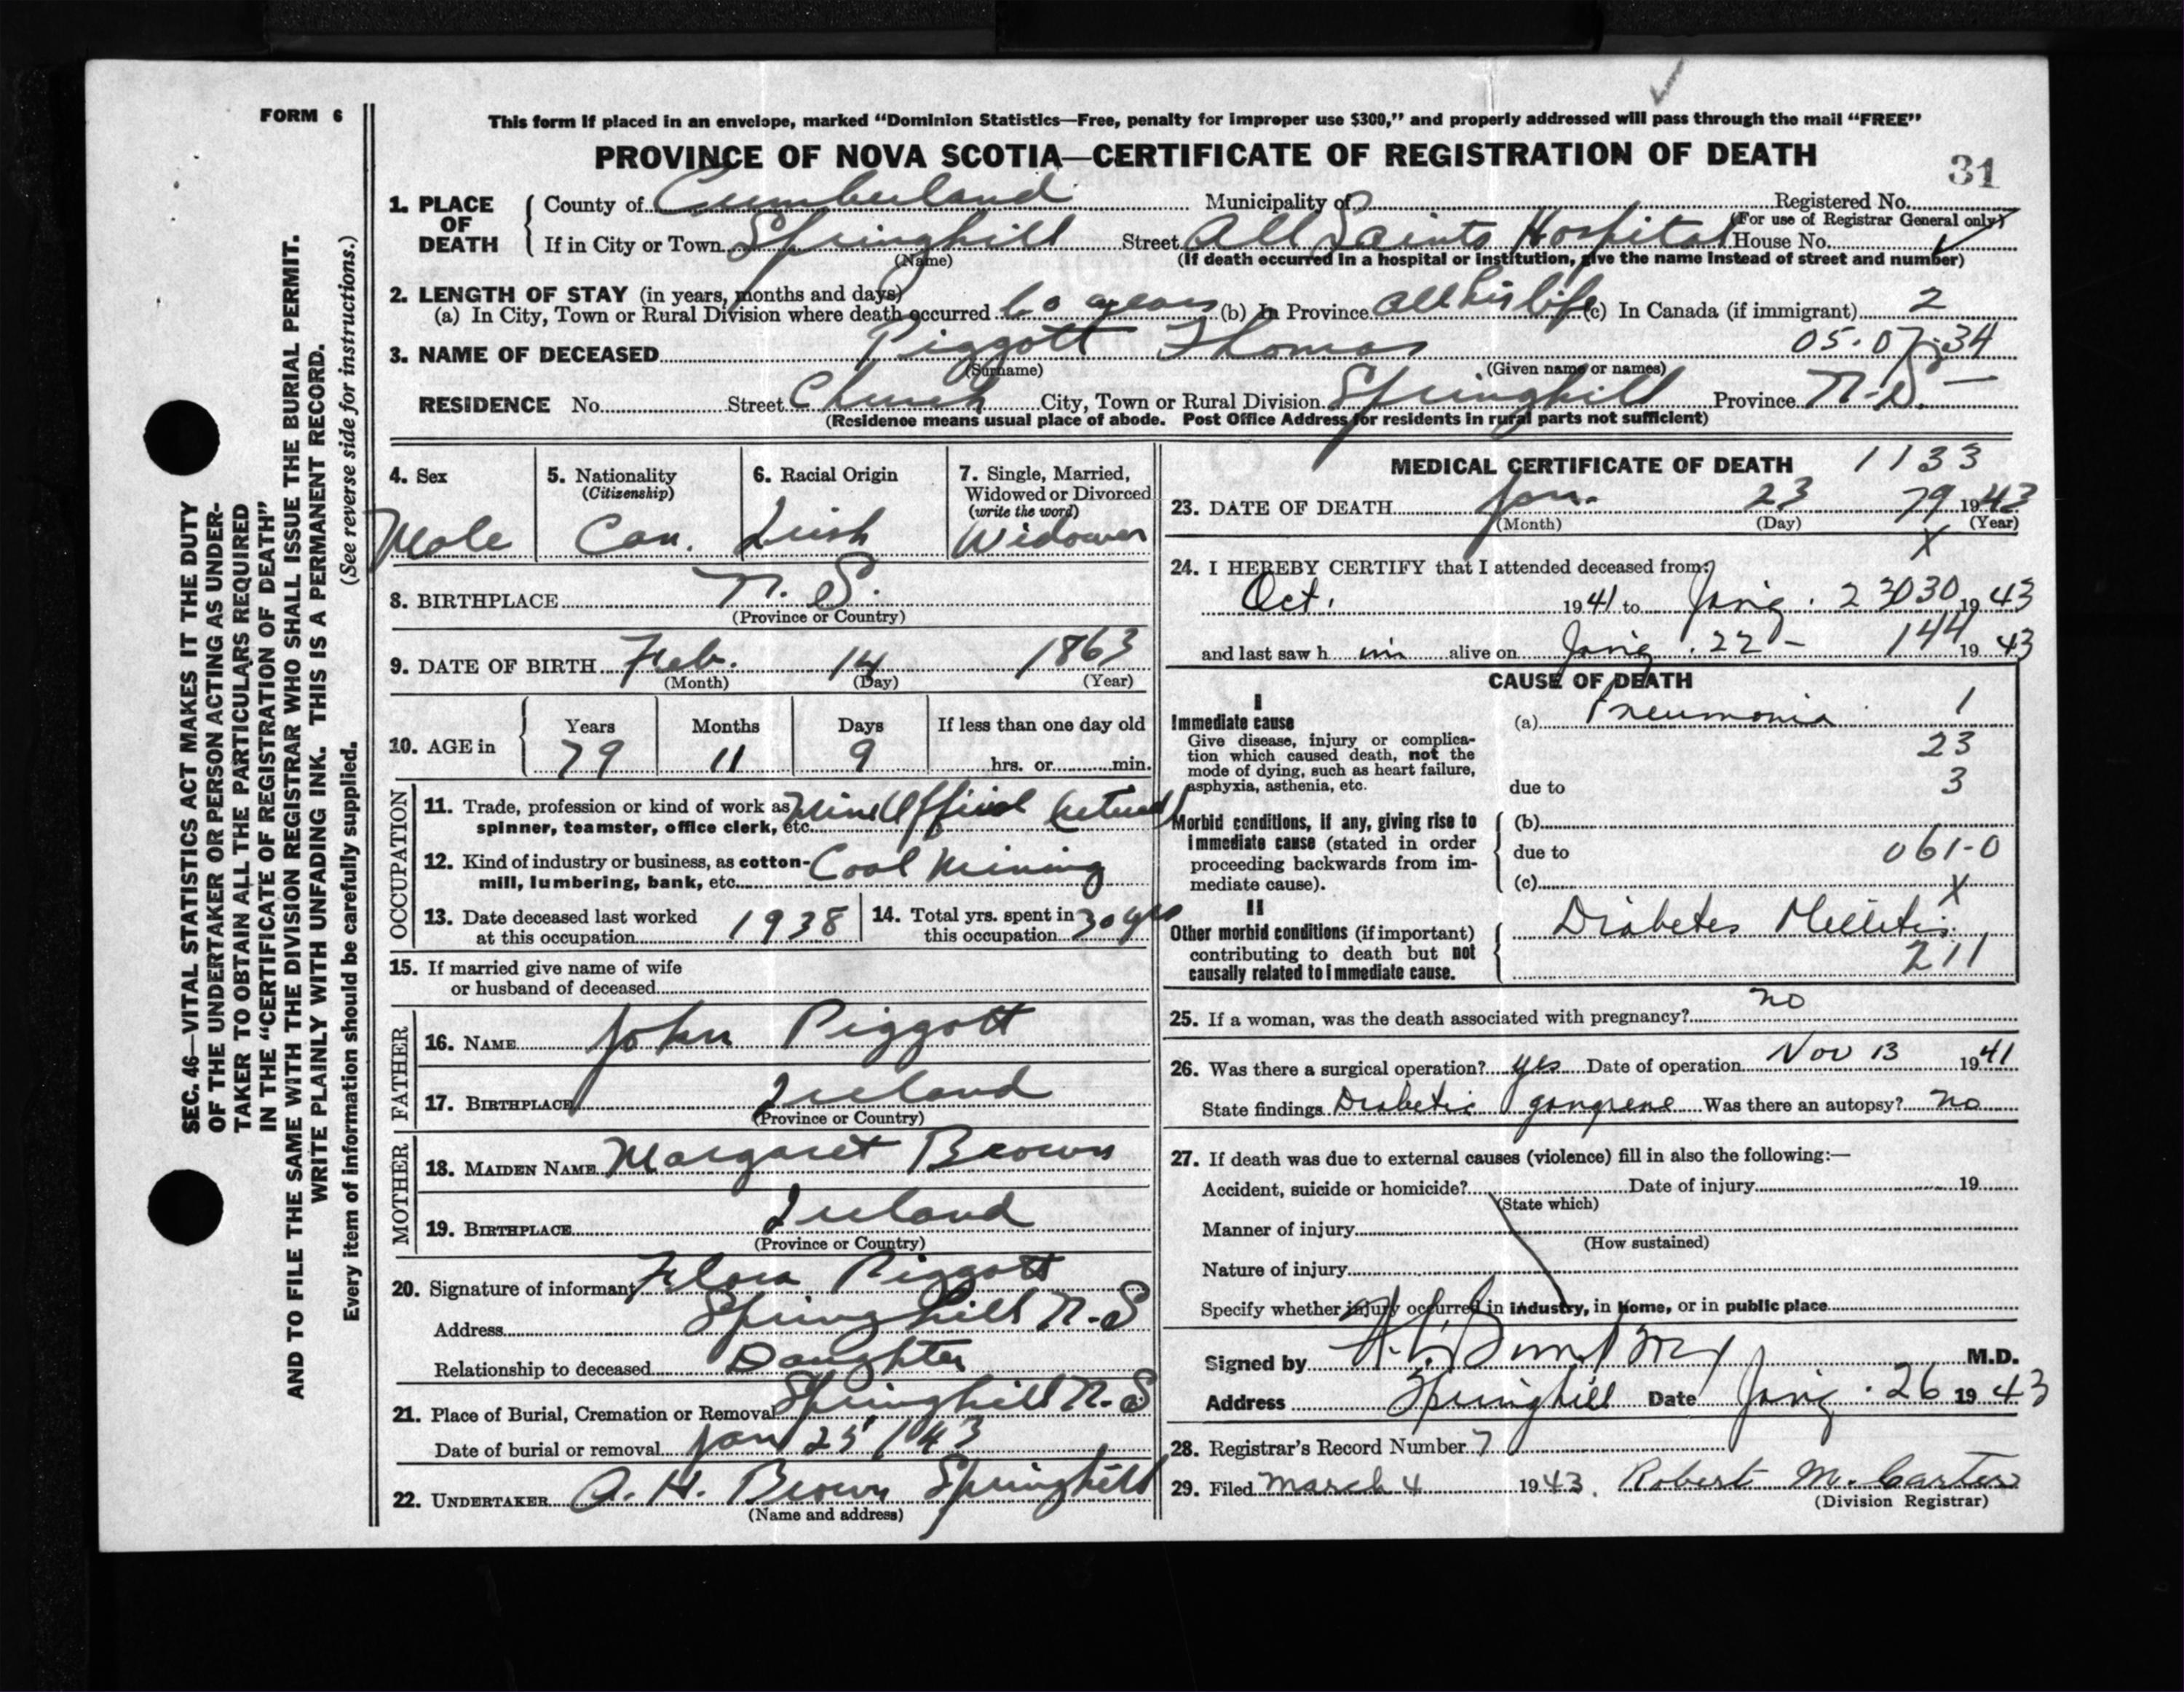 FORM 6
This form if placed in an envelope, marked “Dominion Statistics—Free, penalty for improper use $300,” and properly addressed will pass through the mail “FREE”
PROVINCE OF NOVA SCOTIA—CERTIFICATE OF REGISTRATION OF DEATH
31
1. PLACE OF DEATH County of Cumberland Municipality of Registered No.
(For use of Registrar General only)
If in City or Town Springhill Street All Saints Hospital House No.
(Name) (If death occurred in a hospital or institution, give the name instead of street and number)
2. LENGTH OF STAY (in years, months and days)
(a) In City, Town or Rural Division where death occurred 60 years (b) In Province All his life (c) In Canada (if immigrant) 2
3. NAME OF DECEASED Piggott Thomas 05-07-34
(Surname) (Given name or names)
RESIDENCE No. Street Church City, Town or Rural Division Springhill Province N-S.
(Residence means usual place of abode. Post Office Address for residents in rural parts not sufficient)
4. Sex
Male
5. Nationality
(Citizenship)
Can.
6. Racial Origin
Irish
7. Single, Married,
Widowed or Divorced
(write the word)
Widower
8. BIRTHPLACE N. S.
(Province or Country)
9. DATE OF BIRTH Feb. 14 1863
(Month) (Day) (Year)
10. AGE in Years Months Days If less than one day old
79 11 9 hrs. or min.
OCCUPATION
11. Trade, profession or kind of work as Mine Official (retired)
spinner, teamster, office clerk, etc.
12. Kind of industry or business, as cotton- Coal Mining
mill, lumbering, bank, etc.
13. Date deceased last worked
at this occupation 1938
14. Total yrs. spent in
this occupation 30 yrs
15. If married give name of wife
or husband of deceased
FATHER
16. NAME John Piggott
17. BIRTHPLACE Ireland
(Province or Country)
MOTHER
18. MAIDEN NAME Margaret Brown
19. BIRTHPLACE Ireland
(Province or Country)
20. Signature of informant Flora Piggott
Address Springhill N-S
Relationship to deceased Daughter
21. Place of Burial, Cremation or Removal Springhill N-S
Date of burial or removal Jan 25 / 43
22. UNDERTAKER A. H. Brown Springhill
(Name and address)
MEDICAL CERTIFICATE OF DEATH 1133
23. DATE OF DEATH Jan. 23 79 1943
(Month) (Day) (Year)
X
24. I HEREBY CERTIFY that I attended deceased from:
Oct. 1941 to 23 030 1943
and last saw h im alive on 22 - 144 1943
CAUSE OF DEATH
I
Immediate cause (a) Pneumonia 1
Give disease, injury or complica-
tion which caused death, not the
mode of dying, such as heart failure,
asphyxia, asthenia, etc.
23
due to 3
Morbid conditions, if any, giving rise to
immediate cause (stated in order
proceeding backwards from im-
mediate cause).
(b)
due to 061-0
(c) X
II
Other morbid conditions (if important)
contributing to death but not
causally related to immediate cause.
Diabetes Mellitis
211
25. If a woman, was the death associated with pregnancy? no
26. Was there a surgical operation? yes Date of operation Nov 13 1941
State findings Diabetic gangrene Was there an autopsy? no
27. If death was due to external causes (violence) fill in also the following:—
Accident, suicide or homicide? Date of injury 19
(State which)
Manner of injury
(How sustained)
Nature of injury
Specify whether injury occurred in industry, in home, or in public place
Signed by M.D.
Address Springhill Date 26 1943
28. Registrar's Record Number 7
29. Filed March 4 1943. Robert M. Carter
(Division Registrar)
SEC. 46—VITAL STATISTICS ACT MAKES IT THE DUTY
OF THE UNDERTAKER OR PERSON ACTING AS UNDER-
TAKER TO OBTAIN ALL THE PARTICULARS REQUIRED
IN THE “CERTIFICATE OF REGISTRATION OF DEATH”
AND TO FILE THE SAME WITH THE DIVISION REGISTRAR WHO SHALL ISSUE THE BURIAL PERMIT.
WRITE PLAINLY WITH UNFADING INK. THIS IS A PERMANENT RECORD.
Every item of information should be carefully supplied. (See reverse side for instructions.)